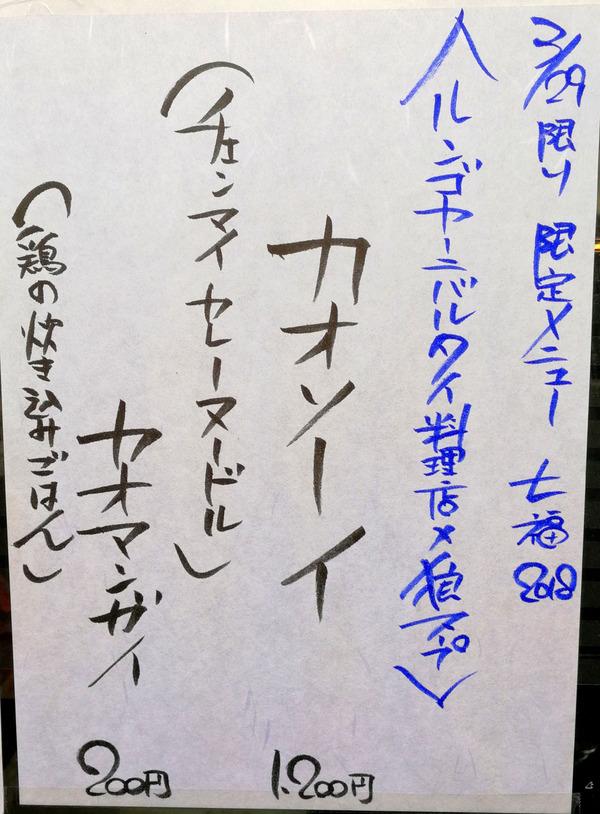 3/29 限り 限定メニュー 七福 2018
〈ルンゴカーニバルタイ料理店×狼スープ〉
カオソーイ 1.200円
(チェンマイカレーヌードル)
カオマンガイ 200円
(鶏の炊き込みごはん)